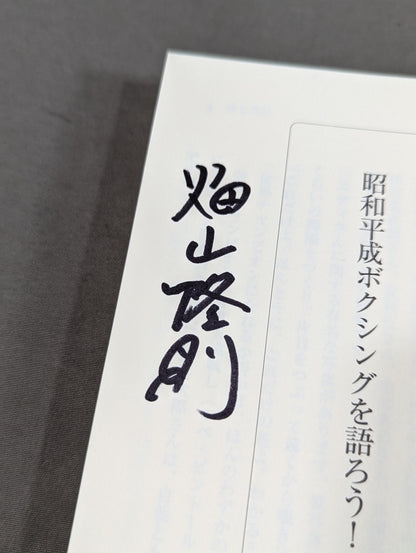 昭和平成ボクシングを語ろう！
畑山隆則